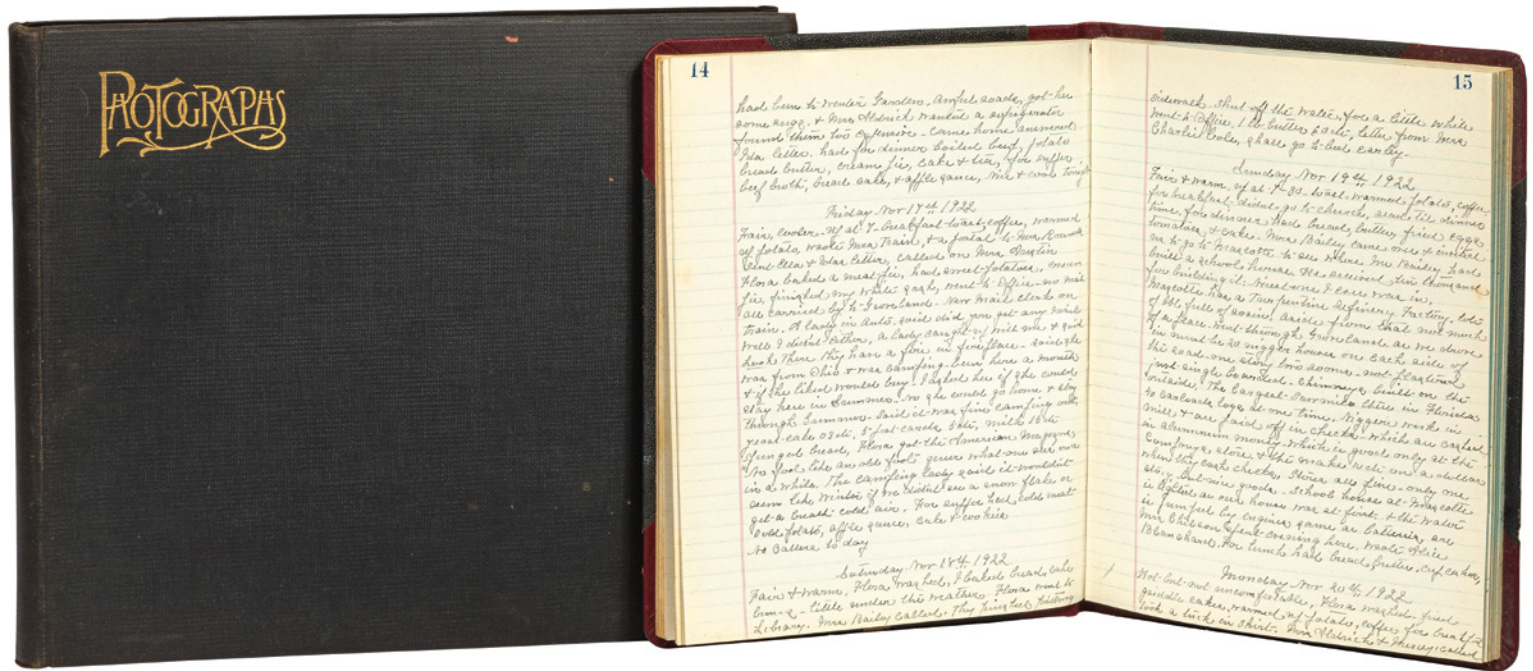 PHOTOGRAPHS
14
had been to Winter Gardens. Awful roads, got her
some eggs. & Mrs Aldrich wanted a refrigerator
found them too expensive - came home answered
Ida letter. had for dinner boiled beef, potato
bread butter, cream pie, cake & tea, for supper
beef broth, bread cake, & apple sauce, nice & cool tonight
Friday Nov 17th 1922
Fair, cooler. up at 7- breakfast toast, coffee, warmed
up potato, wrote Mrs Train, & a postal to Mrs
Sent Ella & Idas letter, called on Mrs Austin
Flora baked a meat pie, had sweet potatoes, cream
pie, finished my white sash, went to Office - no mail
all carried by to Groveland - New Mail clerk on
train. A lady in Auto. said did you get any mail
well I didnt either, a lady caught up with me & said
Look There they have a fire in fire place - said she
was from Ohio & was camping - been here a month
& if she liked would buy. I asked her if she could
stay here in Summer. no she could go home & stay
through Summer - said it was fine camping out,
yeast cake 03cts, 5 post cards 5cts, milk 15cts
Spunged bread, Flora got the American Magazine
"No fool like an old fool" queer what one sees once
in a while. The camping lady said it wouldn't
seem like Winter if we didnt see a snow flake or
get a breath cold air. For supper had cold meat
cold potato, apple sauce, cake & cookies
No Callers to day
Saturday Nov 18th 1922
Fair & warm, Flora washed, I baked bread, cake
bun - a - little under the weather Flora went to
Library. Mrs Bailey called. They finished
15
sidewalk. Shut off the water, for a little while
went to Office. 1 lb butter 60cts, letter from Mrs
Charlie Cole, shall go to bed early-
Sunday Nov 19th 1922
Fair & warm, up at 7-30- toast, warmed potato, coffee,
for breakfast - didnt go to church, read til dinner
time, for dinner had bread, butter, fried eggs
tomatoes, & cake. Mrs Bailey came over & invited
us to go to Mascotte to see where Mr Bailey had
built a school house. He received ten thousand
for building it. Nicest one I ever was in,
Mascotte has a Turpentine Refinery Factory. lots
of bbl full of rosin, aside from that not much
of a place. went through Groveland as we drove
in must be 20 nigger houses on each side of
the road - one story two rooms - not plastered
just single boarded - chimneys built on the
outside. The largest Saw mills there in Florida
40 carloads logs at one time, niggers work in
mill & are paid off in checks - which are cashed
in aluminum money - which is good only at the
Companys, store & they make 10 cts on a dollar
when they cash checks, Stores all fine - only one
story but nice goods - School house at Mascotte
is lighted as our house was at first. & the water
is pumped by engine same as batteries, are
Mrs Gibson spent evening here, wrote Alice
Blanchard. For lunch had bread, butter, cup cakes,
Monday Nov 20th 1922
Hot - but not uncomfortable, Flora washed - fried
griddle cakes, warmed up potato, coffee for breakfast
took a tuck in skirt. Mrs Aldrich & called